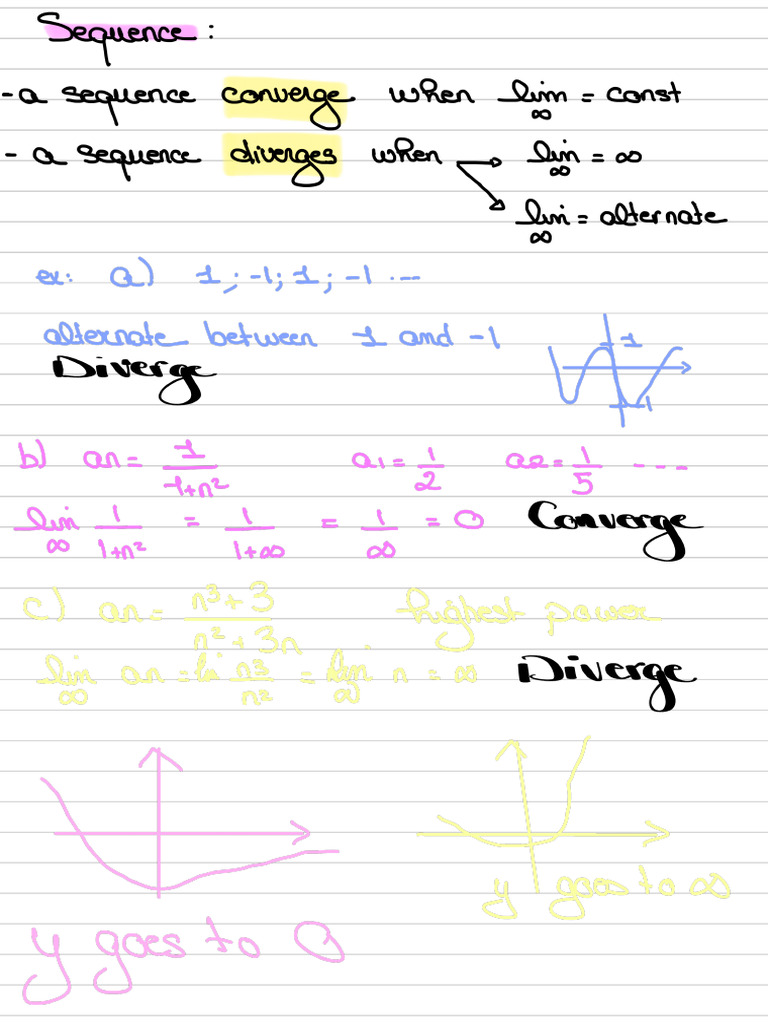 Sequence :
- a sequence converge when lim ∞ = const
- a sequence diverges when → lim ∞ = ∞
→ lim ∞ = alternate
ex: a) 1 ; -1 ; 1 ; -1 ...
alternate between 1 and -1
1
Diverge
-1
b) an = 1/(1+n²) a1 = 1/2 a2 = 1/5 ---
lim ∞ 1/(1+n²) = 1/(1+∞) = 1/∞ = 0 Converge
c) an = (n³+3)/(n²+3n) highest power
lim ∞ an = li n³/n² = lim ∞ n = ∞ Diverge
y goes to ∞
y goes to 0